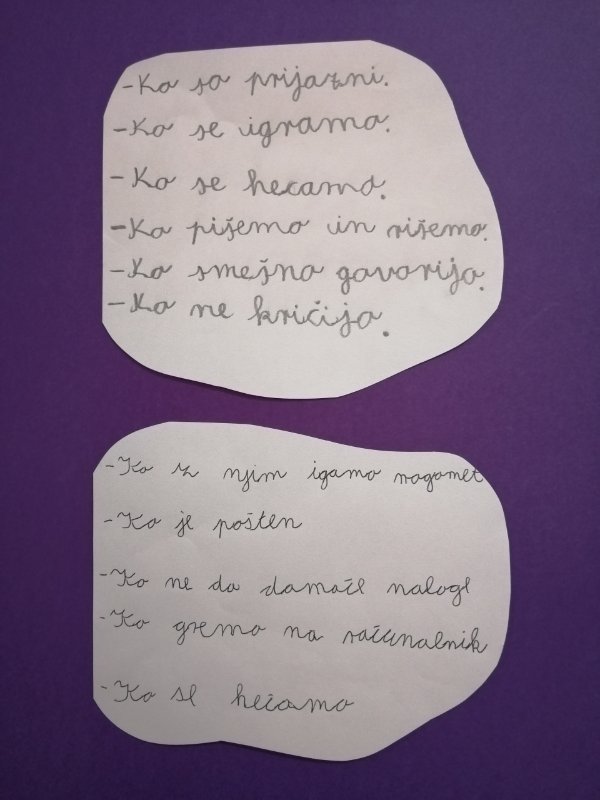 -Ko so prijazni.
-Ko se igramo.
-Ko se hecamo.
-Ko pišemo in rišemo.
-Ko smešno govorijo.
-Ko ne kričijo.
-Ko z njim igamo nogomet
-Ko je pošten
-Ko ne da domače naloge
-Ko gremo na računalnik
-Ko se hečamo